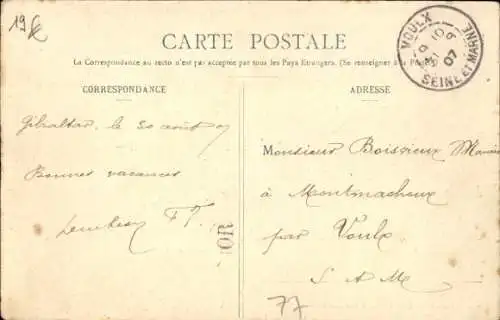 19 €
CARTE POSTALE
La Correspondance au recto n'est pas acceptée par tous les Pays Etrangers. (Se renseigner à la Poste)
CORRESPONDANCE
ADRESSE
VOULX
SEINE ET MARNE
31
07
Gibraltar, le 30 août 07
Bonnes vacances
Monsieur Boissieux
à Montmachoux
par Voulx
S A M
OR
77